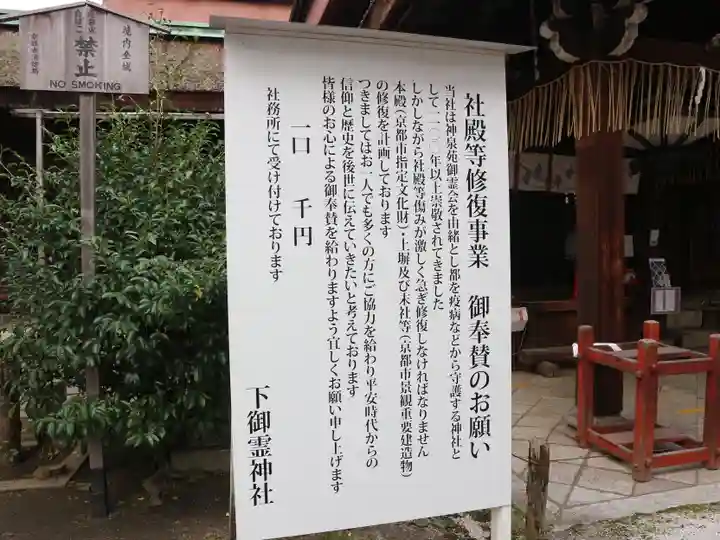 社殿等修復事業　御奉賛のお願い
当社は神泉苑御霊会を由緒とし都を疫病などから守護する神社と
して一一〇〇年以上崇敬されてきました
しかしながら社殿等傷みが激しく急ぎ修復しなければなりません
本殿(京都市指定文化財)・土塀及び末社等(京都市景観重要建造物)
の修復を計画しております
つきましてはお一人でも多くの方にご協力を給わり平安時代からの
信仰と歴史を後世に伝えていきたいと考えております
皆様のお心による御奉賛を給わりますよう宜しくお願い申し上げます
一口　千円
社務所にて受け付けております
下御霊神社
境内全域
禁止
NO SMOKING